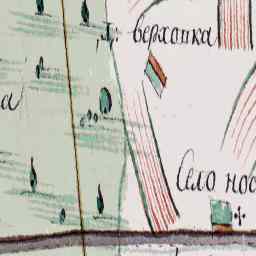 Д. верхопка
а
Село нос